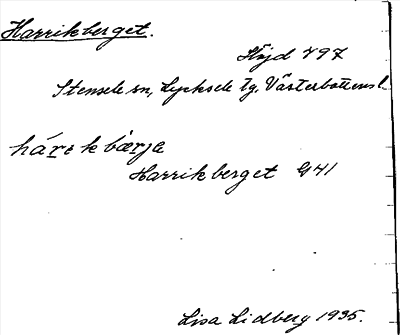 Harrikberget.
Höjd 797
Stensele sn, Lycksele tg. Västerbottens l.
hárikbærja
Harrikberget G41
Lisa Lidberg 1935.